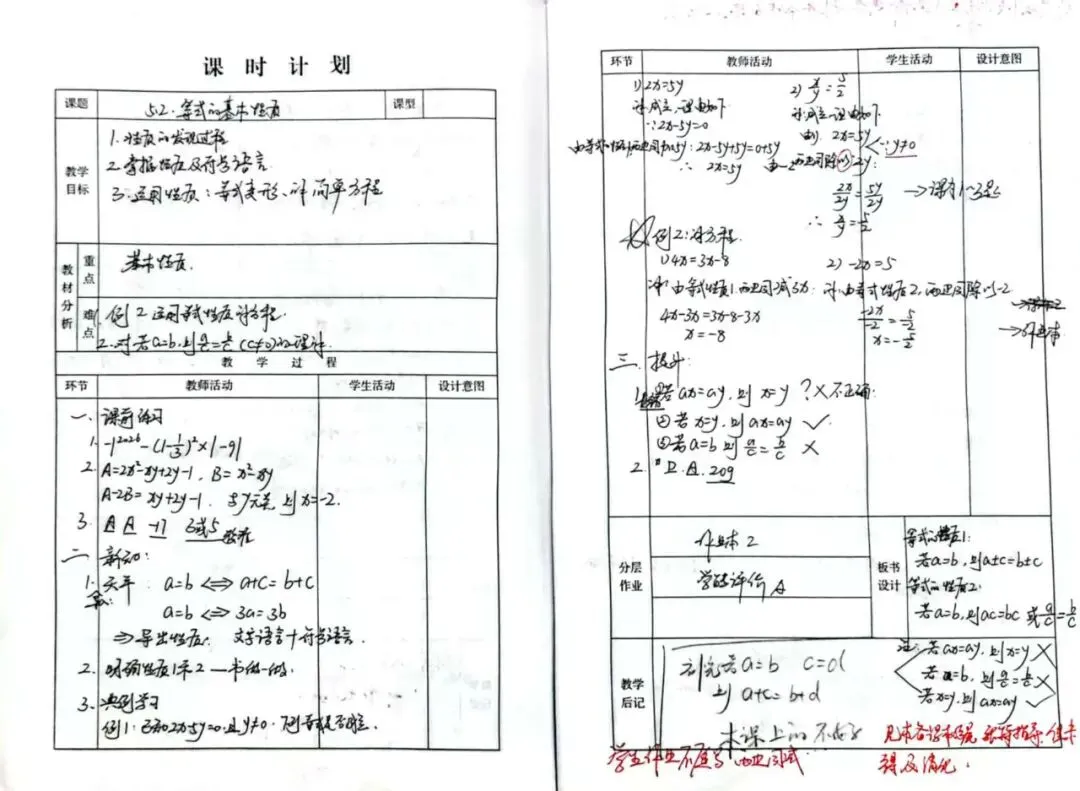 课时计划
课题 5.2.等式的基本性质 课型
教学目标
1.性质的发现过程
2.掌握性质及符号语言
3.运用性质:等式变形、解简单方程
教材分析
重点 基本性质.
难点 例2运用等式性质解方程.
2.对若a=b,则a/c=b/c (c≠0)的理解.
教学过程
环节 教师活动 学生活动 设计意图
一. 课前练习
1. -1²⁰²⁶-(1-1/3)²×|-9|
2. A=2x²-xy+2y-1, B=x²-xy
A-2B=xy+2y-1. 与y无关 则x=-2.
3. A A -17 3或5
二 新知:
1. 天平 a=b <=> a+c=b+c
a=b <=> 3a=3b
=> 导出性质: 文字语言+符号语言.
2. 明确性质1和2
3. 典例学习
例1:已知2x-5y=0,且y≠0.下列等式是否成立.
环节 教师活动 学生活动 设计意图
1) 2x=5y 2) x/y=5/2
解成立,理由如下 解成立,理由如下
∵2x-5y=0 由1) 2x=5y
两边同加5y: 2x-5y+5y=0+5y ∵y≠0
∴ 2x=5y 两边同除以2y:
2x/2y=5y/2y
∴ x/y=5/2
例2:解方程.
1) 4x=3x-8 2) -2x=5
解:由等式性质1,两边同减3x: 解:由等式性质2,两边同除以-2
4x-3x=3x-8-3x -2x/-2=5/-2
x=-8 x=-5/2
三 提升:
1. ①若ax=ay,则x=y ?×不正确:
②若x=y,则ax=ay ✓
③若a=b则a/c=b/c ×
2. D.A.209
分层作业
作业本2
学验评价A
板书设计
等式的性质1:
若a=b,则a+c=b+c
等式的性质2:
若a=b,则ac=bc 或a/c=b/c
注:若ax=ay,则x=y ×
若a=b,则a/c=b/c ×
若x=y,则ax=ay ✓
教学后记
若a=b c=d
则a+c=b+d
本课上的不好
学生作业不愿写"两边同时"